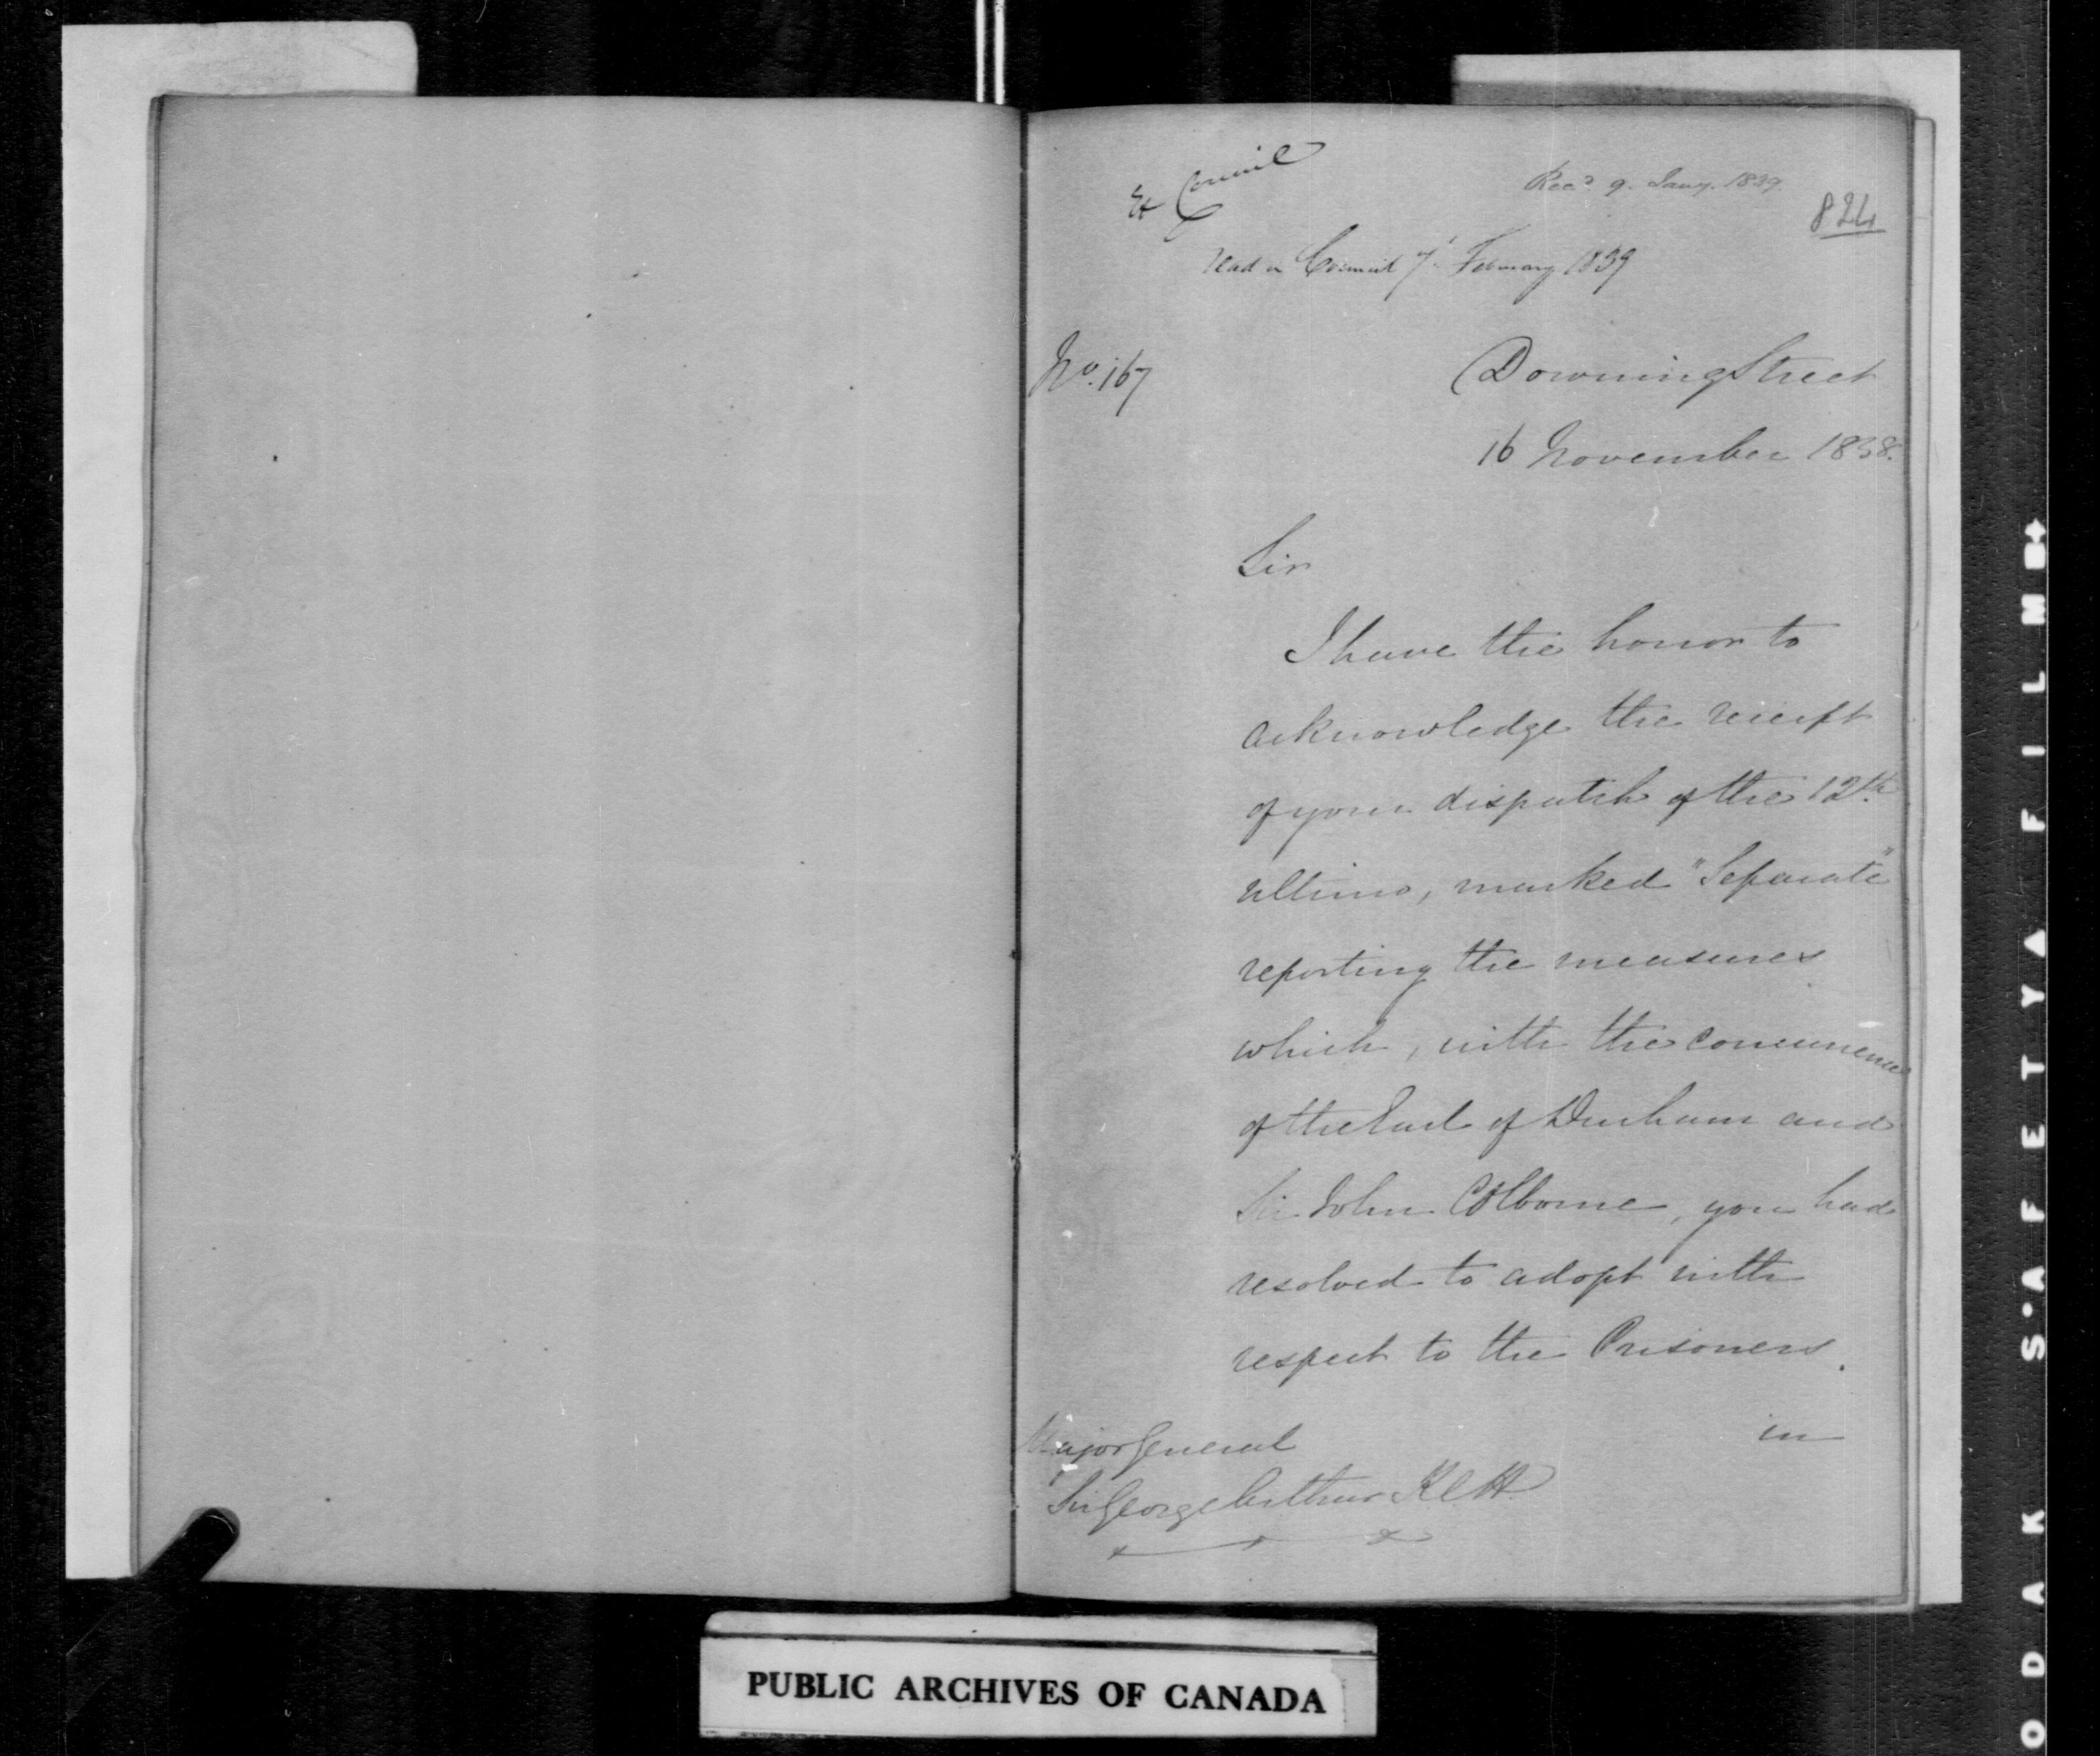 Ex Council
Recd. 9. Jany. 1839.
824
read in Council 7th February 1839
No. 167
Downing Street
16 November 1838.
Sir
I have the honor to
acknowledge the receipt
of your dispatch of the 12th.
ultimo, marked "Separate"
reporting the measures
which, with the concurrence
of the Earl of Durham and
Sir John Colborne, you had
resolved to adopt with
respect to the Prisoners
in
Major General
Sir George Arthur KCH
PUBLIC ARCHIVES OF CANADA
ODAK S'AFETY FILM